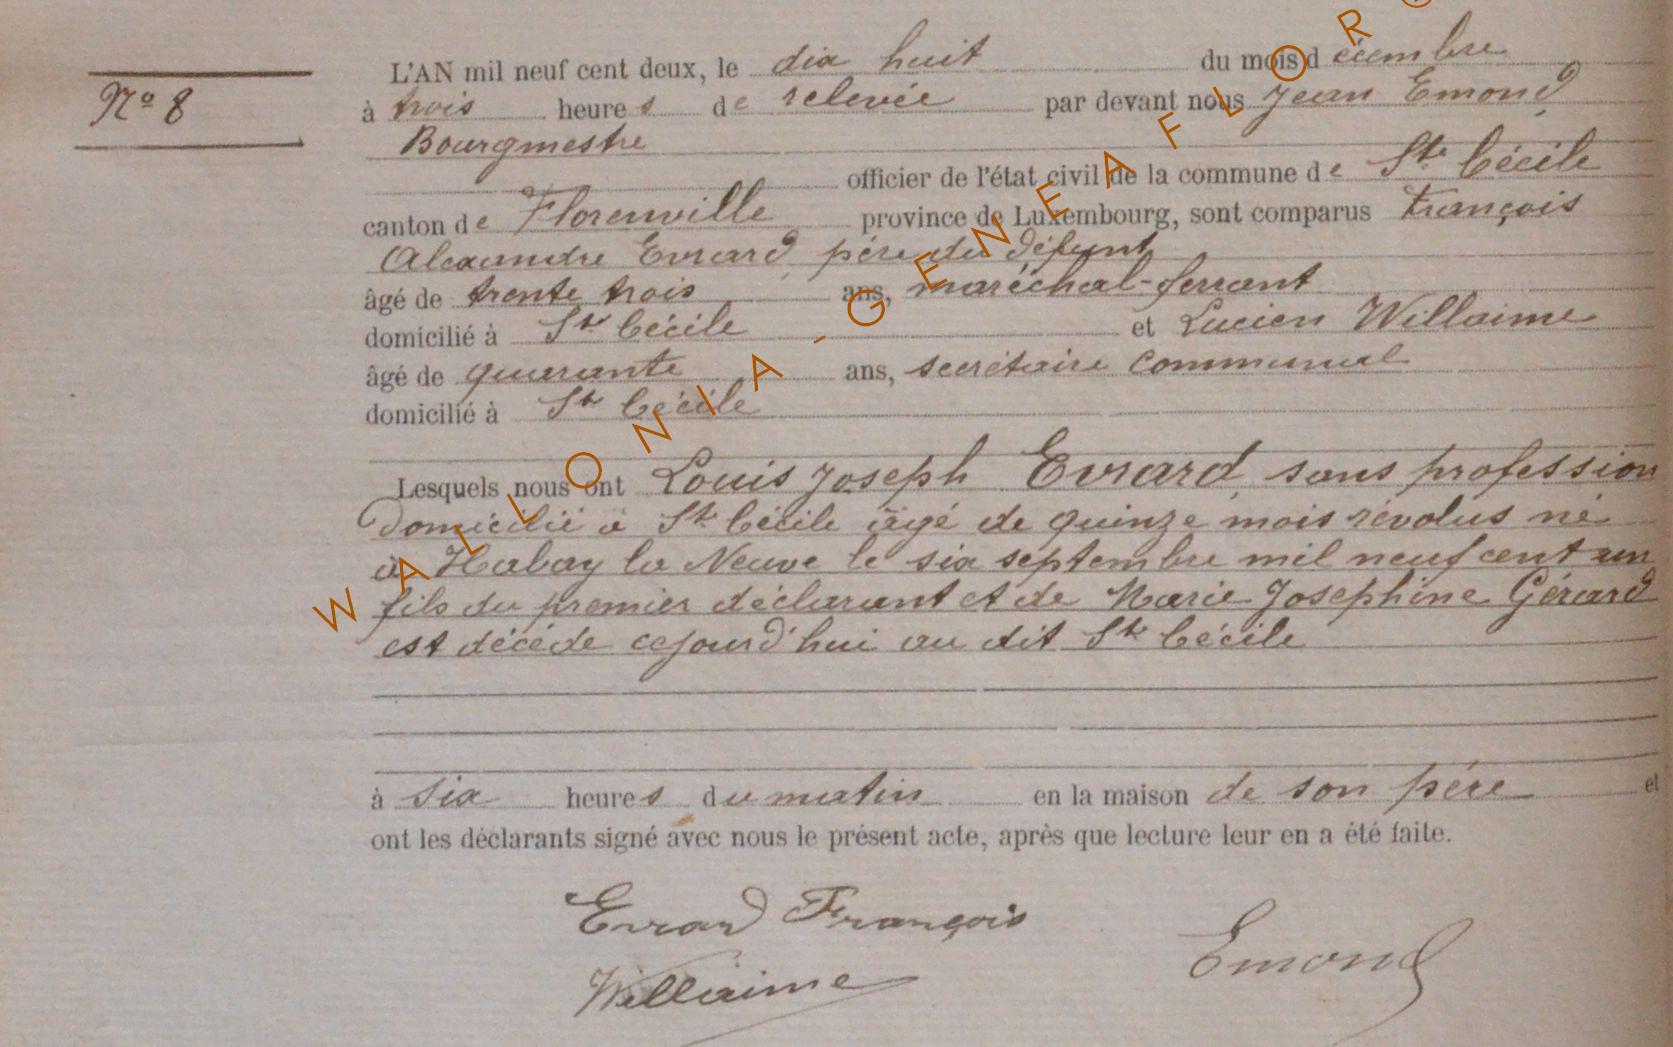 L'AN mil neuf cent deux, le dix huit du mois décembre
Nº 8
à trois heures de relevée par devant nous Jean Emond
Bourgmestre
officier de l'état civil de la commune de Ste Cécile
canton de Florenville province de Luxembourg, sont comparus François
Alexandre Evrard, père du défunt
âgé de trente trois ans, maréchal-ferrant
domicilié à Ste Cécile et Lucien Willaime
âgé de quarante ans, secrétaire communal
domicilié à Ste Cécile
Lesquels nous ont Louis Joseph Evrard, sans profession
domicilié à Ste Cécile âgé de quinze mois révolus né
à Habay la Neuve le six septembre mil neuf cent un
fils du premier déclarant et de Marie Joséphine Gérard
est décédé cejourd'hui au dit Ste Cécile
à six heures du matin en la maison de son père et
ont les déclarants signé avec nous le présent acte, après que lecture leur en a été faite.
Evrard François
Emond
Willaime
WALLONIA-GENEAFLOR©